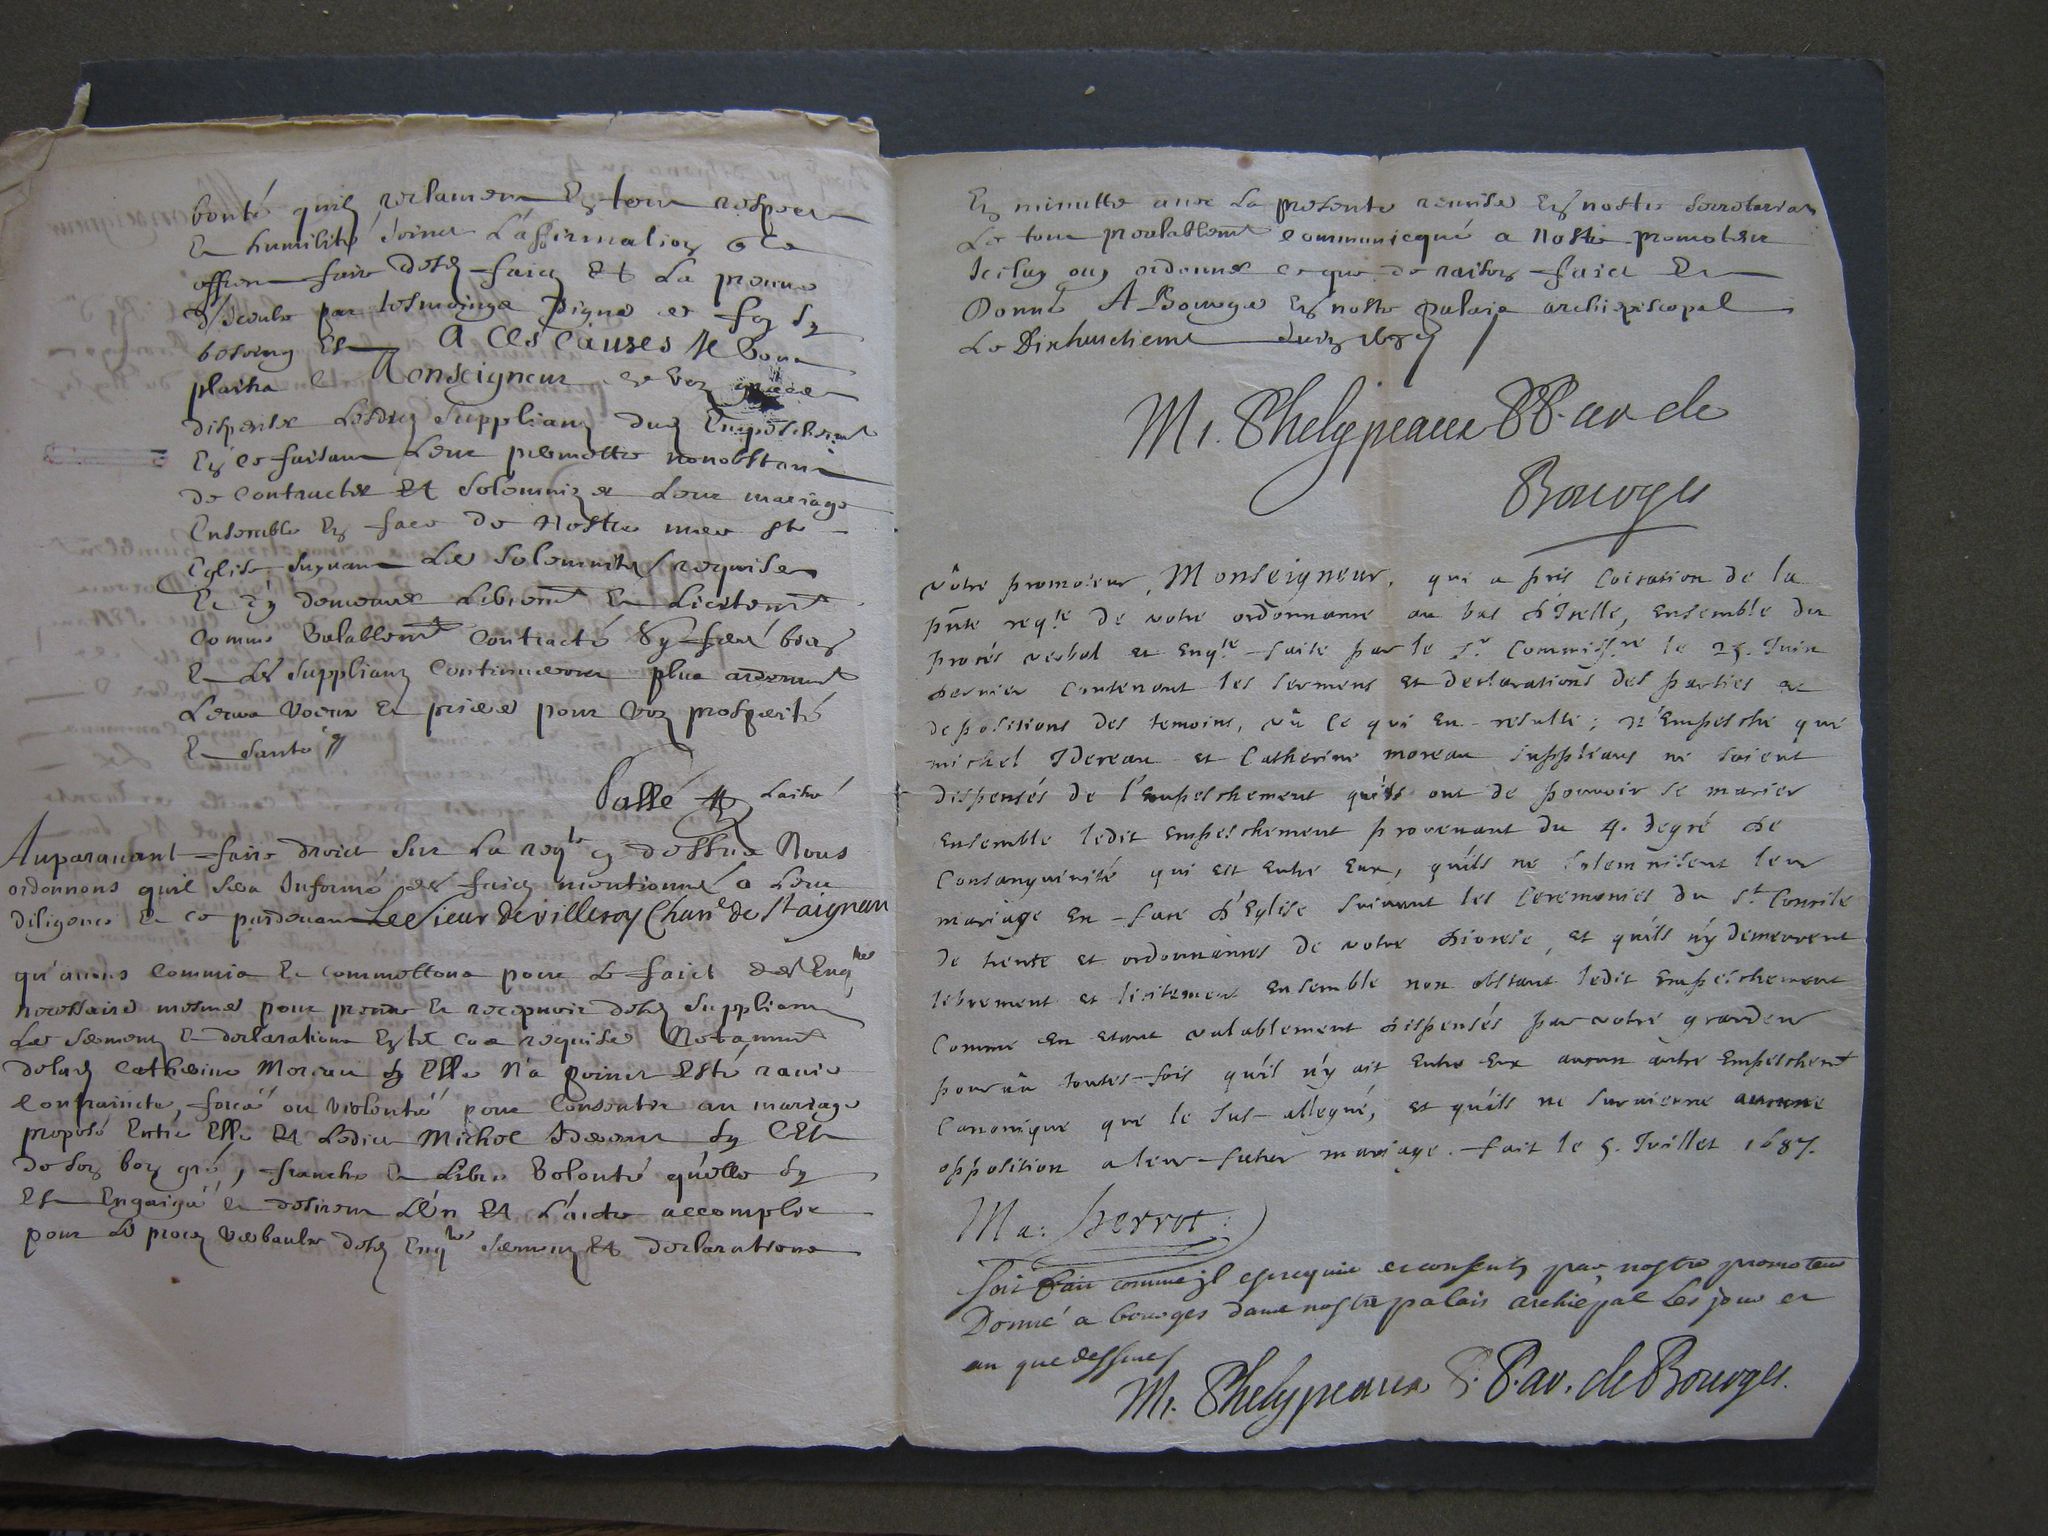 bonté quilz reclament En tout respect
Et humilité joinct L'affirmation quilz
offrent faire desd. faictz Et La preuve
dIceulx par tesmoings dignes de foy sy
besoing Est A Ces Causes Il Vous
plaira Monseigneur de voz graces
dispenser Lesdictz Supplians dud Empeschemt
En ce faisant Leur permettre nonobstant
de Contracter Et Solemnizer Leur mariage
Ensemble En face de Nostre mere ste
Eglise suyvant Les Solemnitez requises
Et y demeurer Librement Et Licitement
Comme Valablemt Contracté Sy ferez bien
Et Les Supplians Continueront plus ardemmt
Leurs Voeux Et prieres pour Voz prosperité
Et Santé
Pallé
Auparavant faire droict Sur La reqte cy dessus Nous
ordonnons quil sera Informé des faictz mentionnez a Leur
diligence Et ce pardevant Le Sieur de villeroy Chane de St aignan
qu'avons Commis Et Commettons pour Le faict des Enqtes
necessaires mesmes pour prendre Et recepvoir desd Supplians
Les sermentz Et declarations En tel Cas requises Notamment
de lad Catherine Moreau sy Elle N'a point Esté ravie
contraincte, forcée ou violentée pour Consentir au mariage
proposé Entre Elle Et Ledict Michel Idereau sy C'Est
de son bon gré, franche Et Libre Volonté qu'elle sy
Est Engaigée Et desirent L'un Et L'autre accomplir
pour Les procez Verbaulx desd Enqtes sermentz Et declarations
En minutte avec La presente remise En nostre Secretariat
Le tout prealablemt communicqué a Nostre promoteur
Iceluy ouy ordonner ce que de raison faict Et
Donné A Bourges En nostre palais archiepiscopal
Le Dixhuictieme Juin
M. Phelypeaux P P. ar. de
Bourges
vôtre promoteur, Monseigneur, qui a pris Coication de la
pnte reqte de votre ordonnance au bas d'Icelle, ensemble du
procés verbal et Enqte faite par le Sr Commissre le 25. Juin
dernier Contenant les sermens et declarations des parties et
depositions des temoins, vû Ce qui En resulte; N'Empesche que
michel Idereau et Catherine moreau supplians ne soient
dispensés de l'Empeschement qu'ils ont de pouvoir se marier
Ensemble ledit Empeschement provenant du 4. degré de
Consanguinité qui est Entre Eux, qu'ils ne solemnisent leur
mariage En face d'Eglise suivant les Ceremonies du St Concile
de trente et ordonnances de votre diocese, et qu'ils n'y demeurent
librement et licitement Ensemble non obstant ledit Empeschement
Comme En etant valablement dispensés par votre grandeur
pourvû toutes-fois qu'il n'y ait Entre Eux aucun autre Empeschemt
Canonique que le sus-allegué, et qu'ils ne survienne aucune
opposition a leur futur mariage. fait le 5. Juillet 1687.
Ma: Perrot
Soit fait comme jl est requis et consenty par nostre promoteur
Donné a bourges dans nostre palais archiepal Les jour et
an que dessus
M. Phelypeaux P. P. ar. de Bourges.